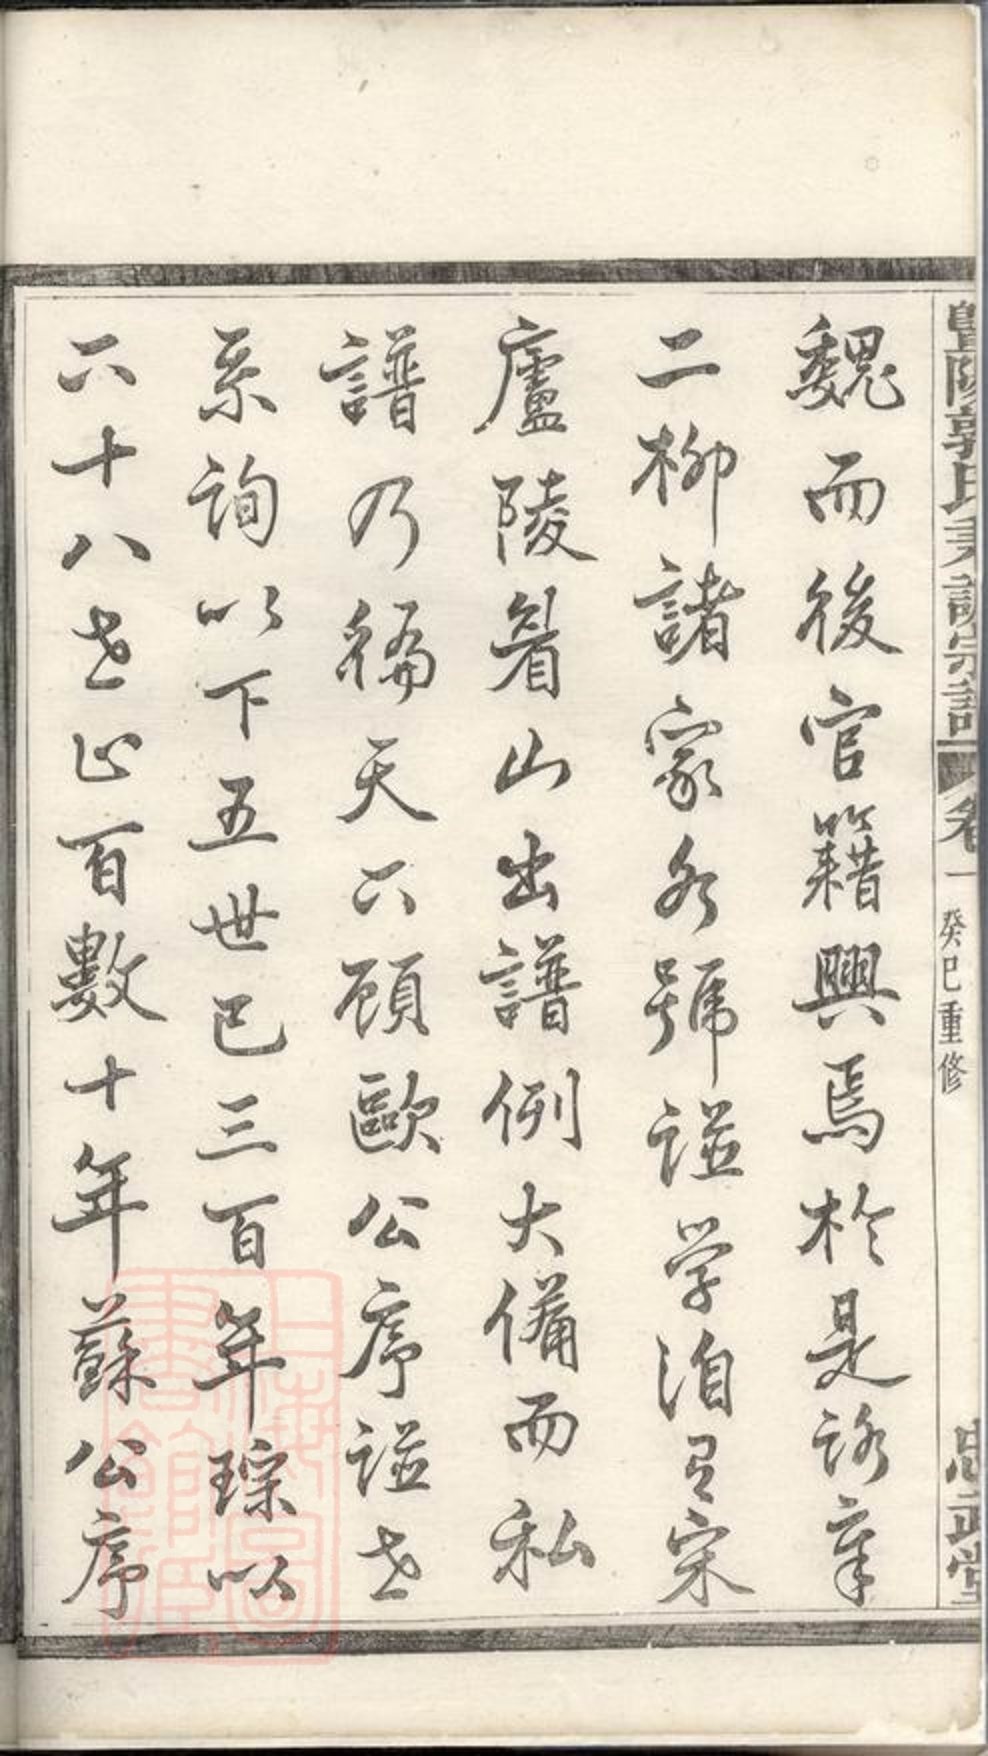 暨陽郭氏 宗譜 卷一 癸巳重修 忠武堂
魏而後官籍興焉於是路韋
二柳諸家各號諩学洎有宋
廬陵眉山出譜例大備而私
譜乃徧天下顧歐公序諩世
系詢以下五世已三百年琮以
下十八世止百數十年蘇公序